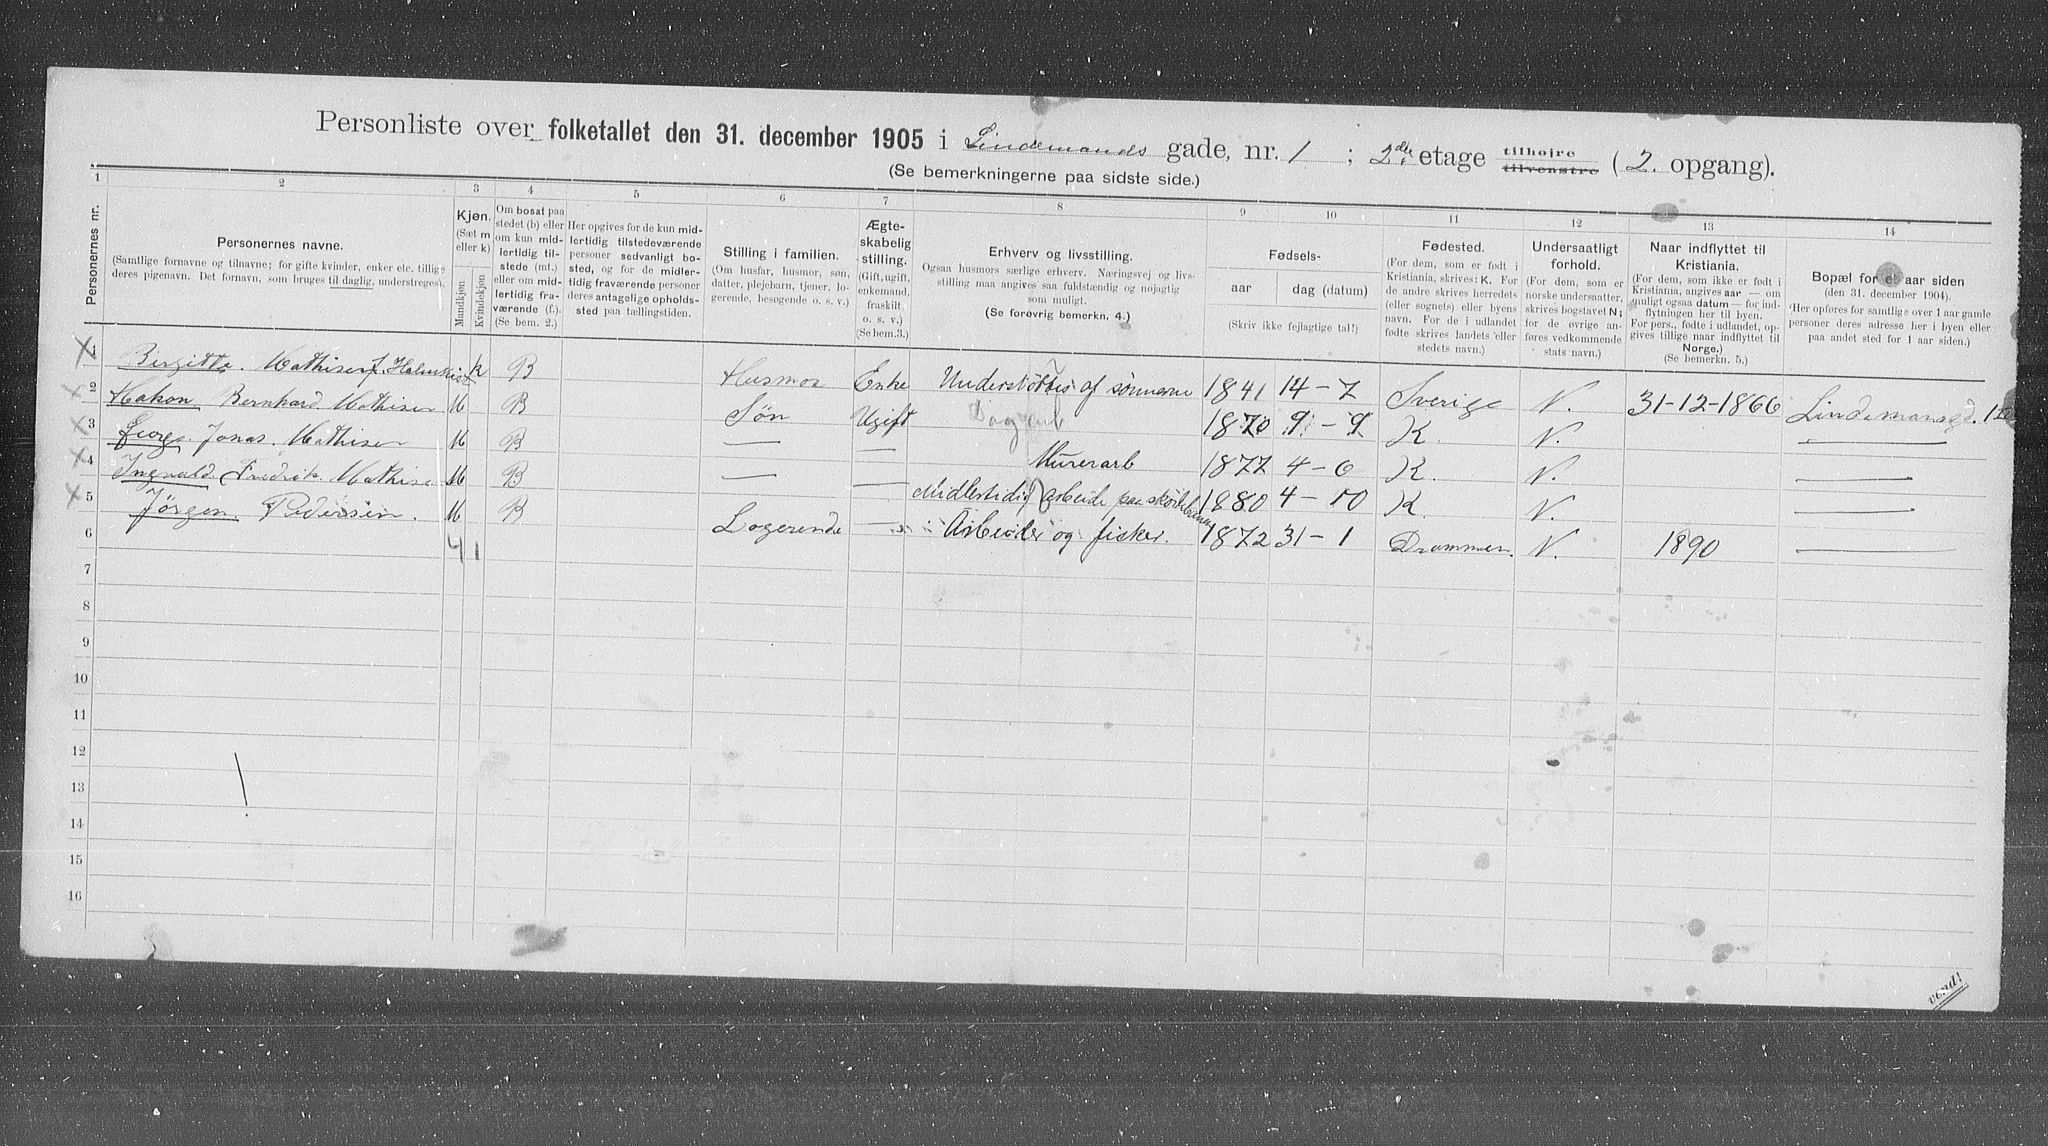 Personliste over folketallet den 31. december 1905 i Lindemands gade, nr. 1 ; 2den etage tilhøire tilvenstre (2. opgang).
(Se bemerkningerne paa sidste side.)
1 2 3 4 5 6 7 8 9 10 11 12 13 14
Personernes nr.
Personernes navne.
(Samtlige fornavne og tilnavne; for gifte kvinder, enker etc. tillige
deres pigenavn. Det fornavn, som bruges til daglig, understreges).
Kjøn.
(Sæt m
eller k)
Mandkjøn
Kvindekjøn
Om bosat paa
stedet (b) eller
om kun mid-
lertidig til-
stede (mt.)
eller om mid-
lertidig fra-
værende (f.).
(Se bem. 2.)
Her opgives for de kun mid-
lertidig tilstedeværende
personer sedvanligt bo-
sted, og for de midler-
tidig fraværende personer
deres antagelige opholds-
sted paa tællingstiden.
Stilling i familien.
(Om husfar, husmor, søn,
datter, plejebarn, tjener, lo-
gerende, besøgende o. s. v.)
Ægte-
skabelig
stilling.
(Gift, ugift,
enkemand,
fraskilt
o. s. v.)
(Se bem. 3.)
Erhverv og livsstilling.
Ogsaa husmors særlige erhverv. Næringsvej og livs-
stilling maa angives saa fuldstændig og nøjagtig
som muligt.
(Se forøvrig bemerkn. 4.)
Fødsels-
aar dag (datum)
(Skriv ikke fejlagtige tal!)
Fødested.
(For dem, som er født i
Kristiania, skrives: K. For
de andre skrives herredets
(eller sognets) eller byens
navn. For de i udlandet
fødte skrives landets eller
stedets navn.)
Undersaatligt
forhold.
(For dem, som er
norske undersaatter,
skrives bogstavet N;
for de øvrige an-
føres vedkommende
stats navn.)
Naar indflyttet til
Kristiania.
(For dem, som ikke er født i
Kristiania, angives aar — om
muligt ogsaa datum — for ind-
flytningen her til byen.
For pers., fødte i udlandet, op-
gives tillige naar indflyttet til
Norge.)
(Se bemerkn. 5.)
Bopæl for et aar siden
(den 31. december 1904.)
(Her opføres for samtlige over 1 aar gamle
personer deres adresse her i byen eller
paa andet sted for 1 aar siden.)
1 Birgitte Mathisen f. Holmkvist k B Husmor Enke Understöttes af sønnerne 1841 14-7 Sverige N. 31-12-1866 Lindemansgd. 1
2 Hakon Bernhard Mathisen M B Søn Ugift Dagarb 1870 9-9 K. N. —
3 Georg Jonas Mathisen M B — — Murerarb 1877 4-6 K. N. —
4 Ingvald Fredrik Mathisen M B — — Midlertidig arbeide paa 1880 4-10 K. N. —
5 Jörgen Pedersen. M B Logerende — Arbeider og fisker. 1872 31-1 Drammen. N. 1890 —
6 4 1
7
8
9
10
11
12
13
14
15
16
vend!